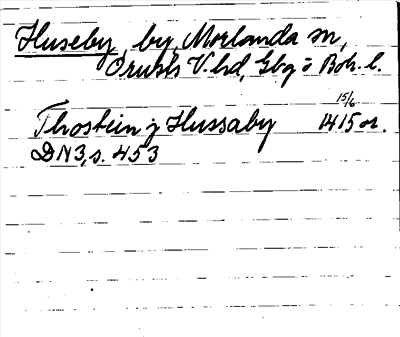 Huseby, by, Morlanda sn,
Orusts V. hd, Gbg o Boh. l.
15/6
Throstein j Hussaby 1415 or.
DN3, s. 453